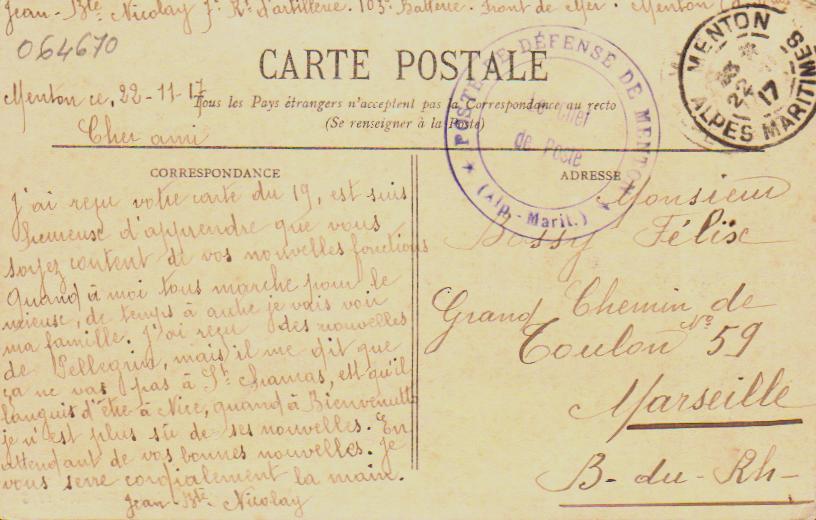 Jean-Bte Nicolay 7e Rt d'artillerie. 103e Batterie. Front de Mer. Menton
064670
CARTE POSTALE
Menton ce, 22-11-17
Tous les Pays étrangers n'acceptent pas la Correspondance au recto
(Se renseigner à la Poste)
Cher ami
POSTE DE DÉFENSE DE MENTON
(Alp.-Marit.)
Le Chef
de Poste
MENTON
22
17
ALPES MARITIMES
CORRESPONDANCE
J'ai reçu votre carte du 19, est suis
heureuse d'apprendre que vous
soyez content de vos nouvelles fonctions
Quand à moi tous marche pour le
mieuse, de temps à autre je vais voir
ma famille. J'ai reçu des nouvelles
de Pellegrin, mais il me dit que
ça ne vas pas à St. Chamas, est qu'il
languit d'être à Nice, quand à Bienvenutti
je n'est plus su de ses nouvelles. En
attendant de vos bonnes nouvelles. Je
vous serre cordialement la main.
Jean-Bte Nicolay
ADRESSE
Monsieur
Bossy Félix
Grand Chemin de
Toulon No 59
Marseille
B-du-Rh-